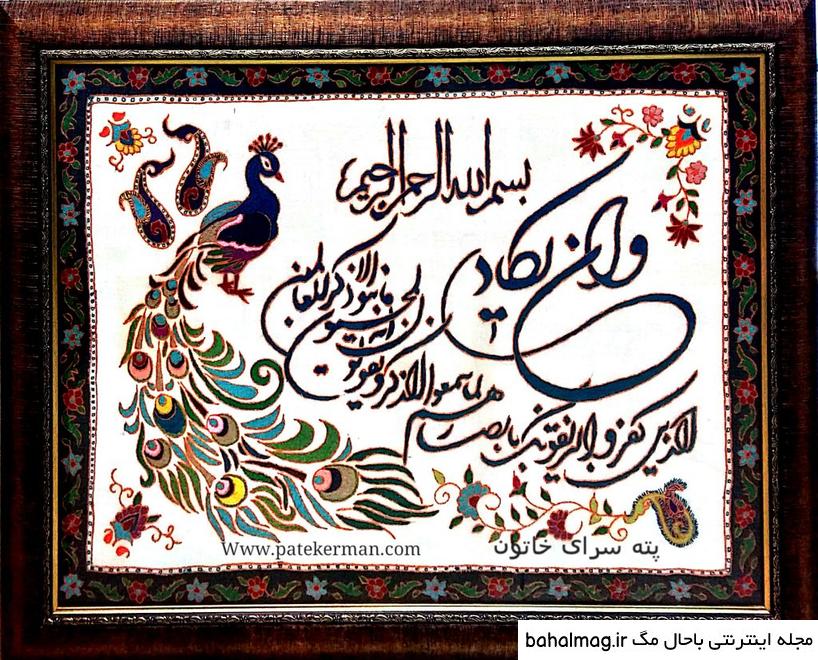 بسم الله الرحمن الرحیم
وان یکاد
الذین کفروا لیزلقونک بابصارهم
لما سمعوا الذکر و یقولون
انه لمجنون
و ما هو الا ذکر للعالمین
Www.patekerman.com
پته سرای خاتون
مجله اینترنتی باحال مگ bahalmag.ir